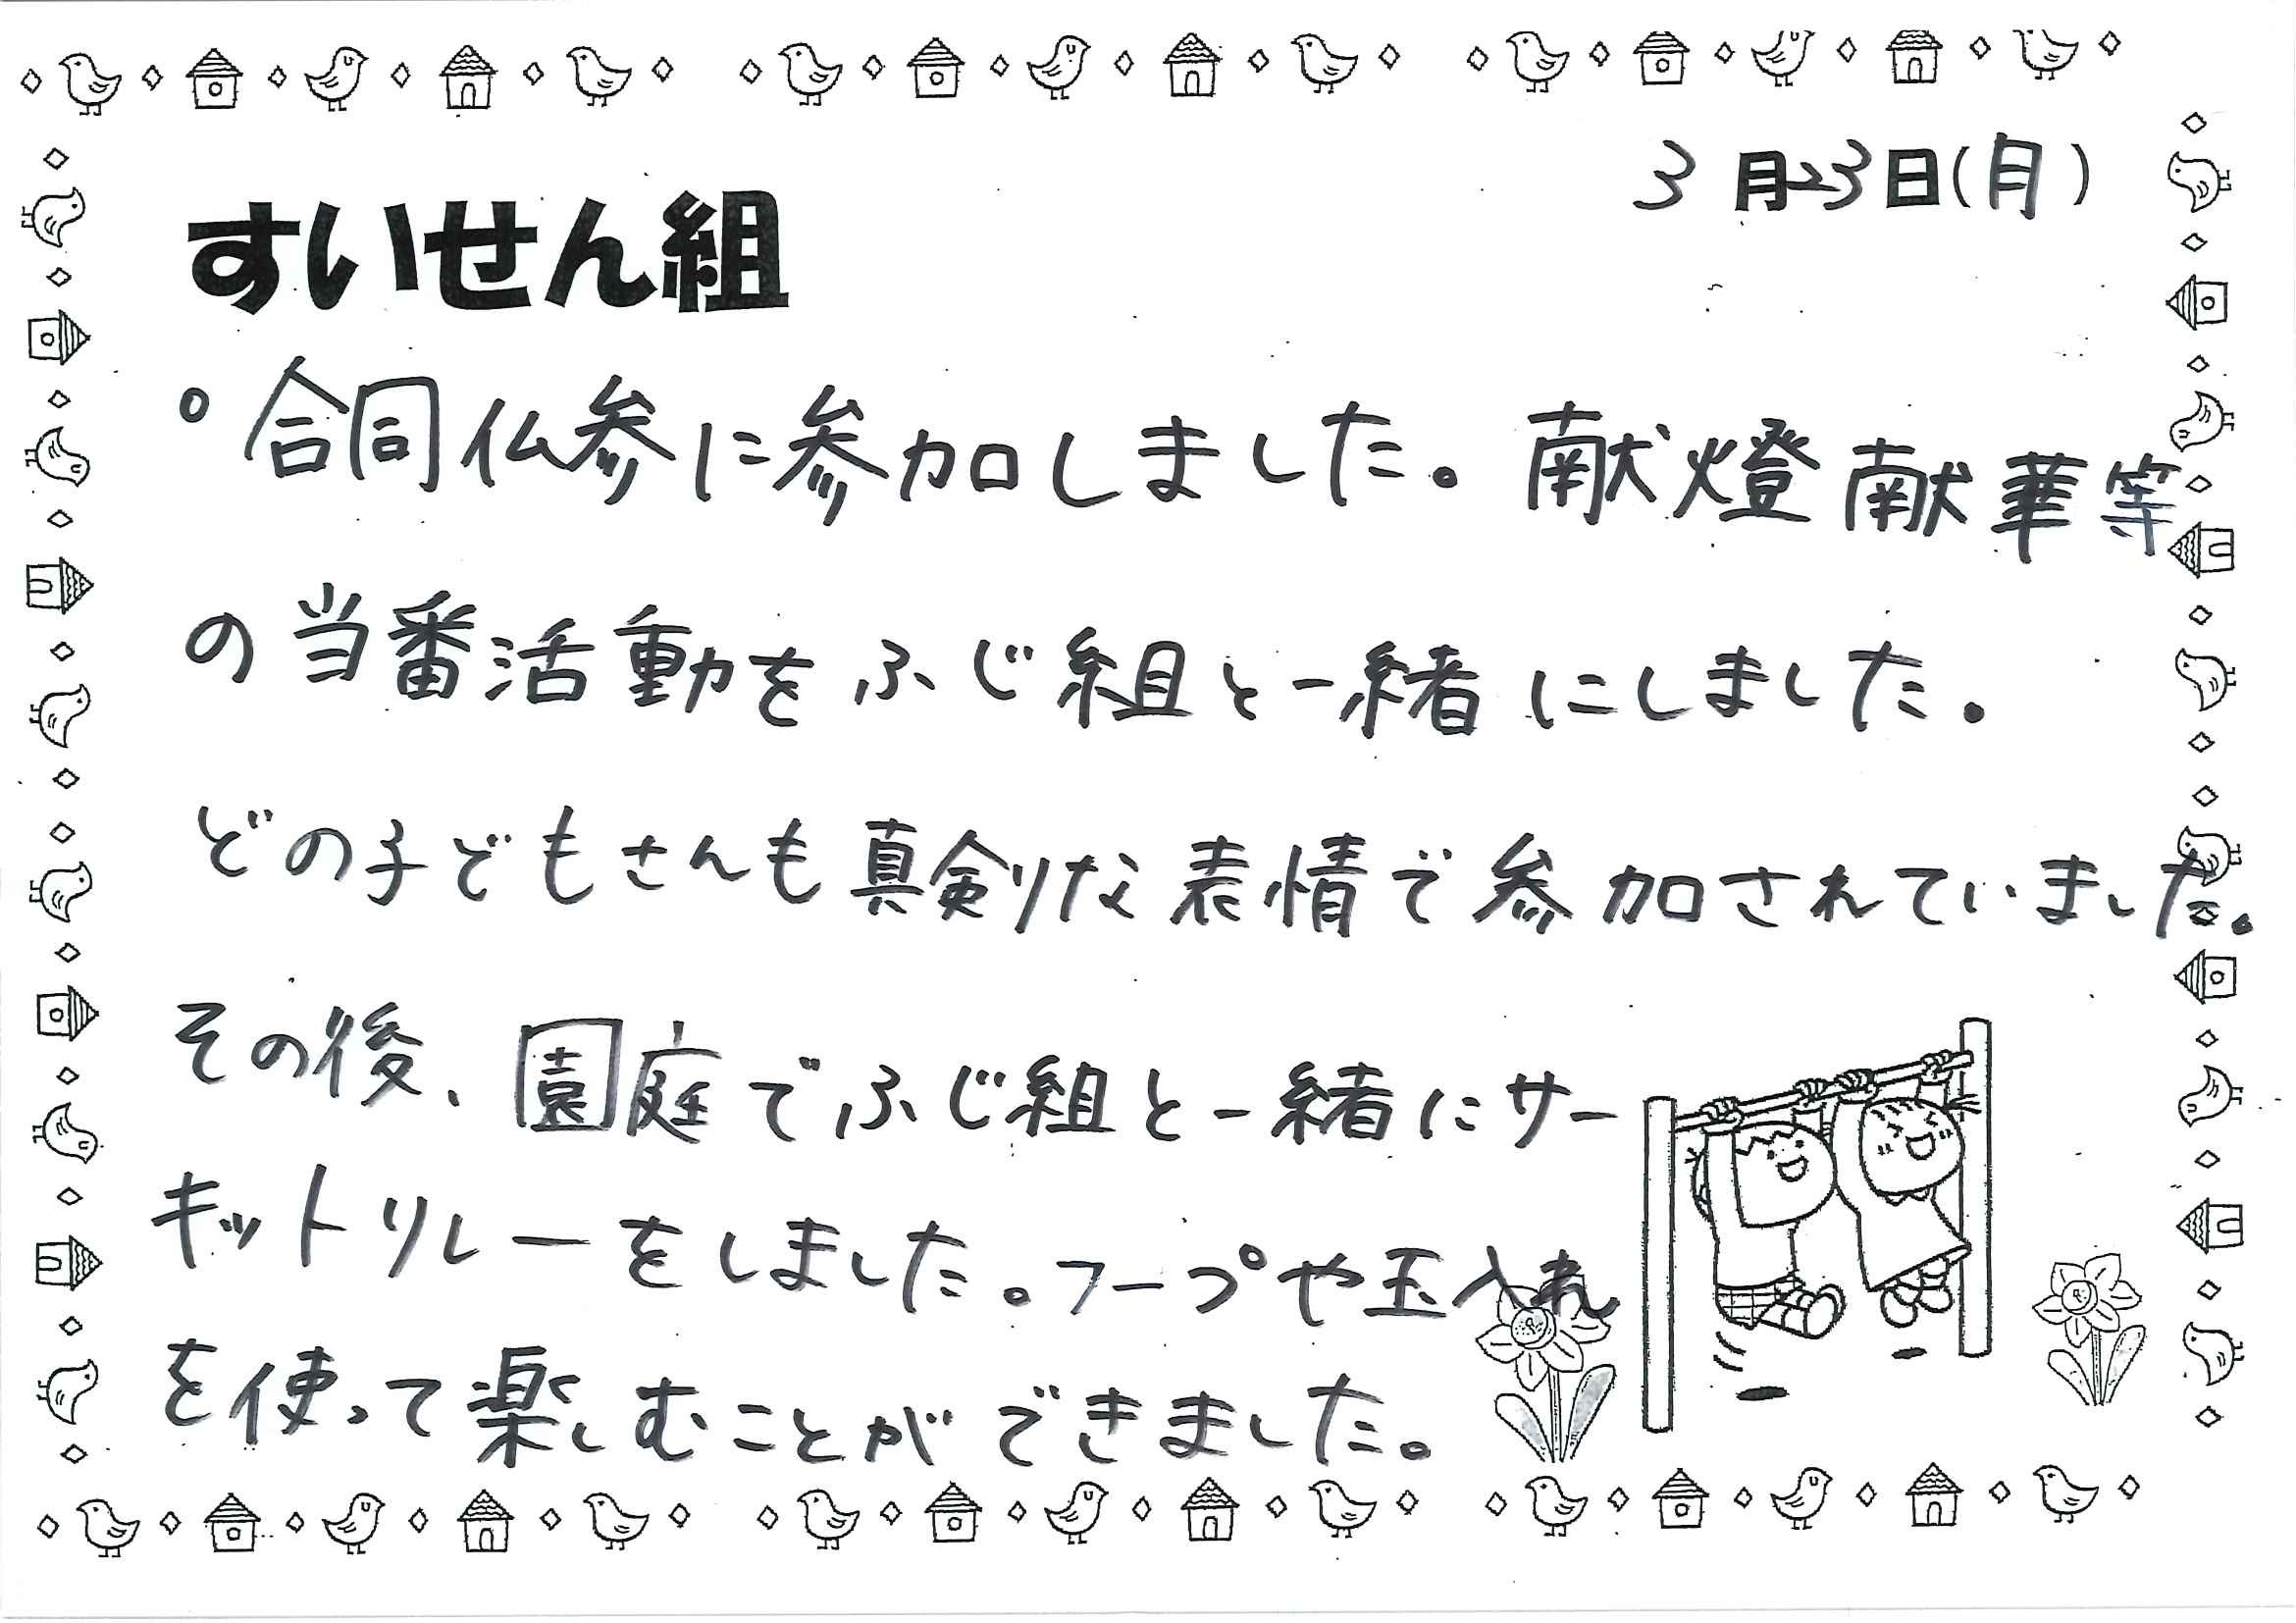 3月23日(月)
すいせん組
○合同仏参に参加しました。献燈献華等
の当番活動をふじ組と一緒にしました。
どの子どもさんも真剣な表情で参加されていました。
その後、園庭でふじ組と一緒にサー
キットリレーをしました。フープや玉入れ
を使って楽しむことができました。